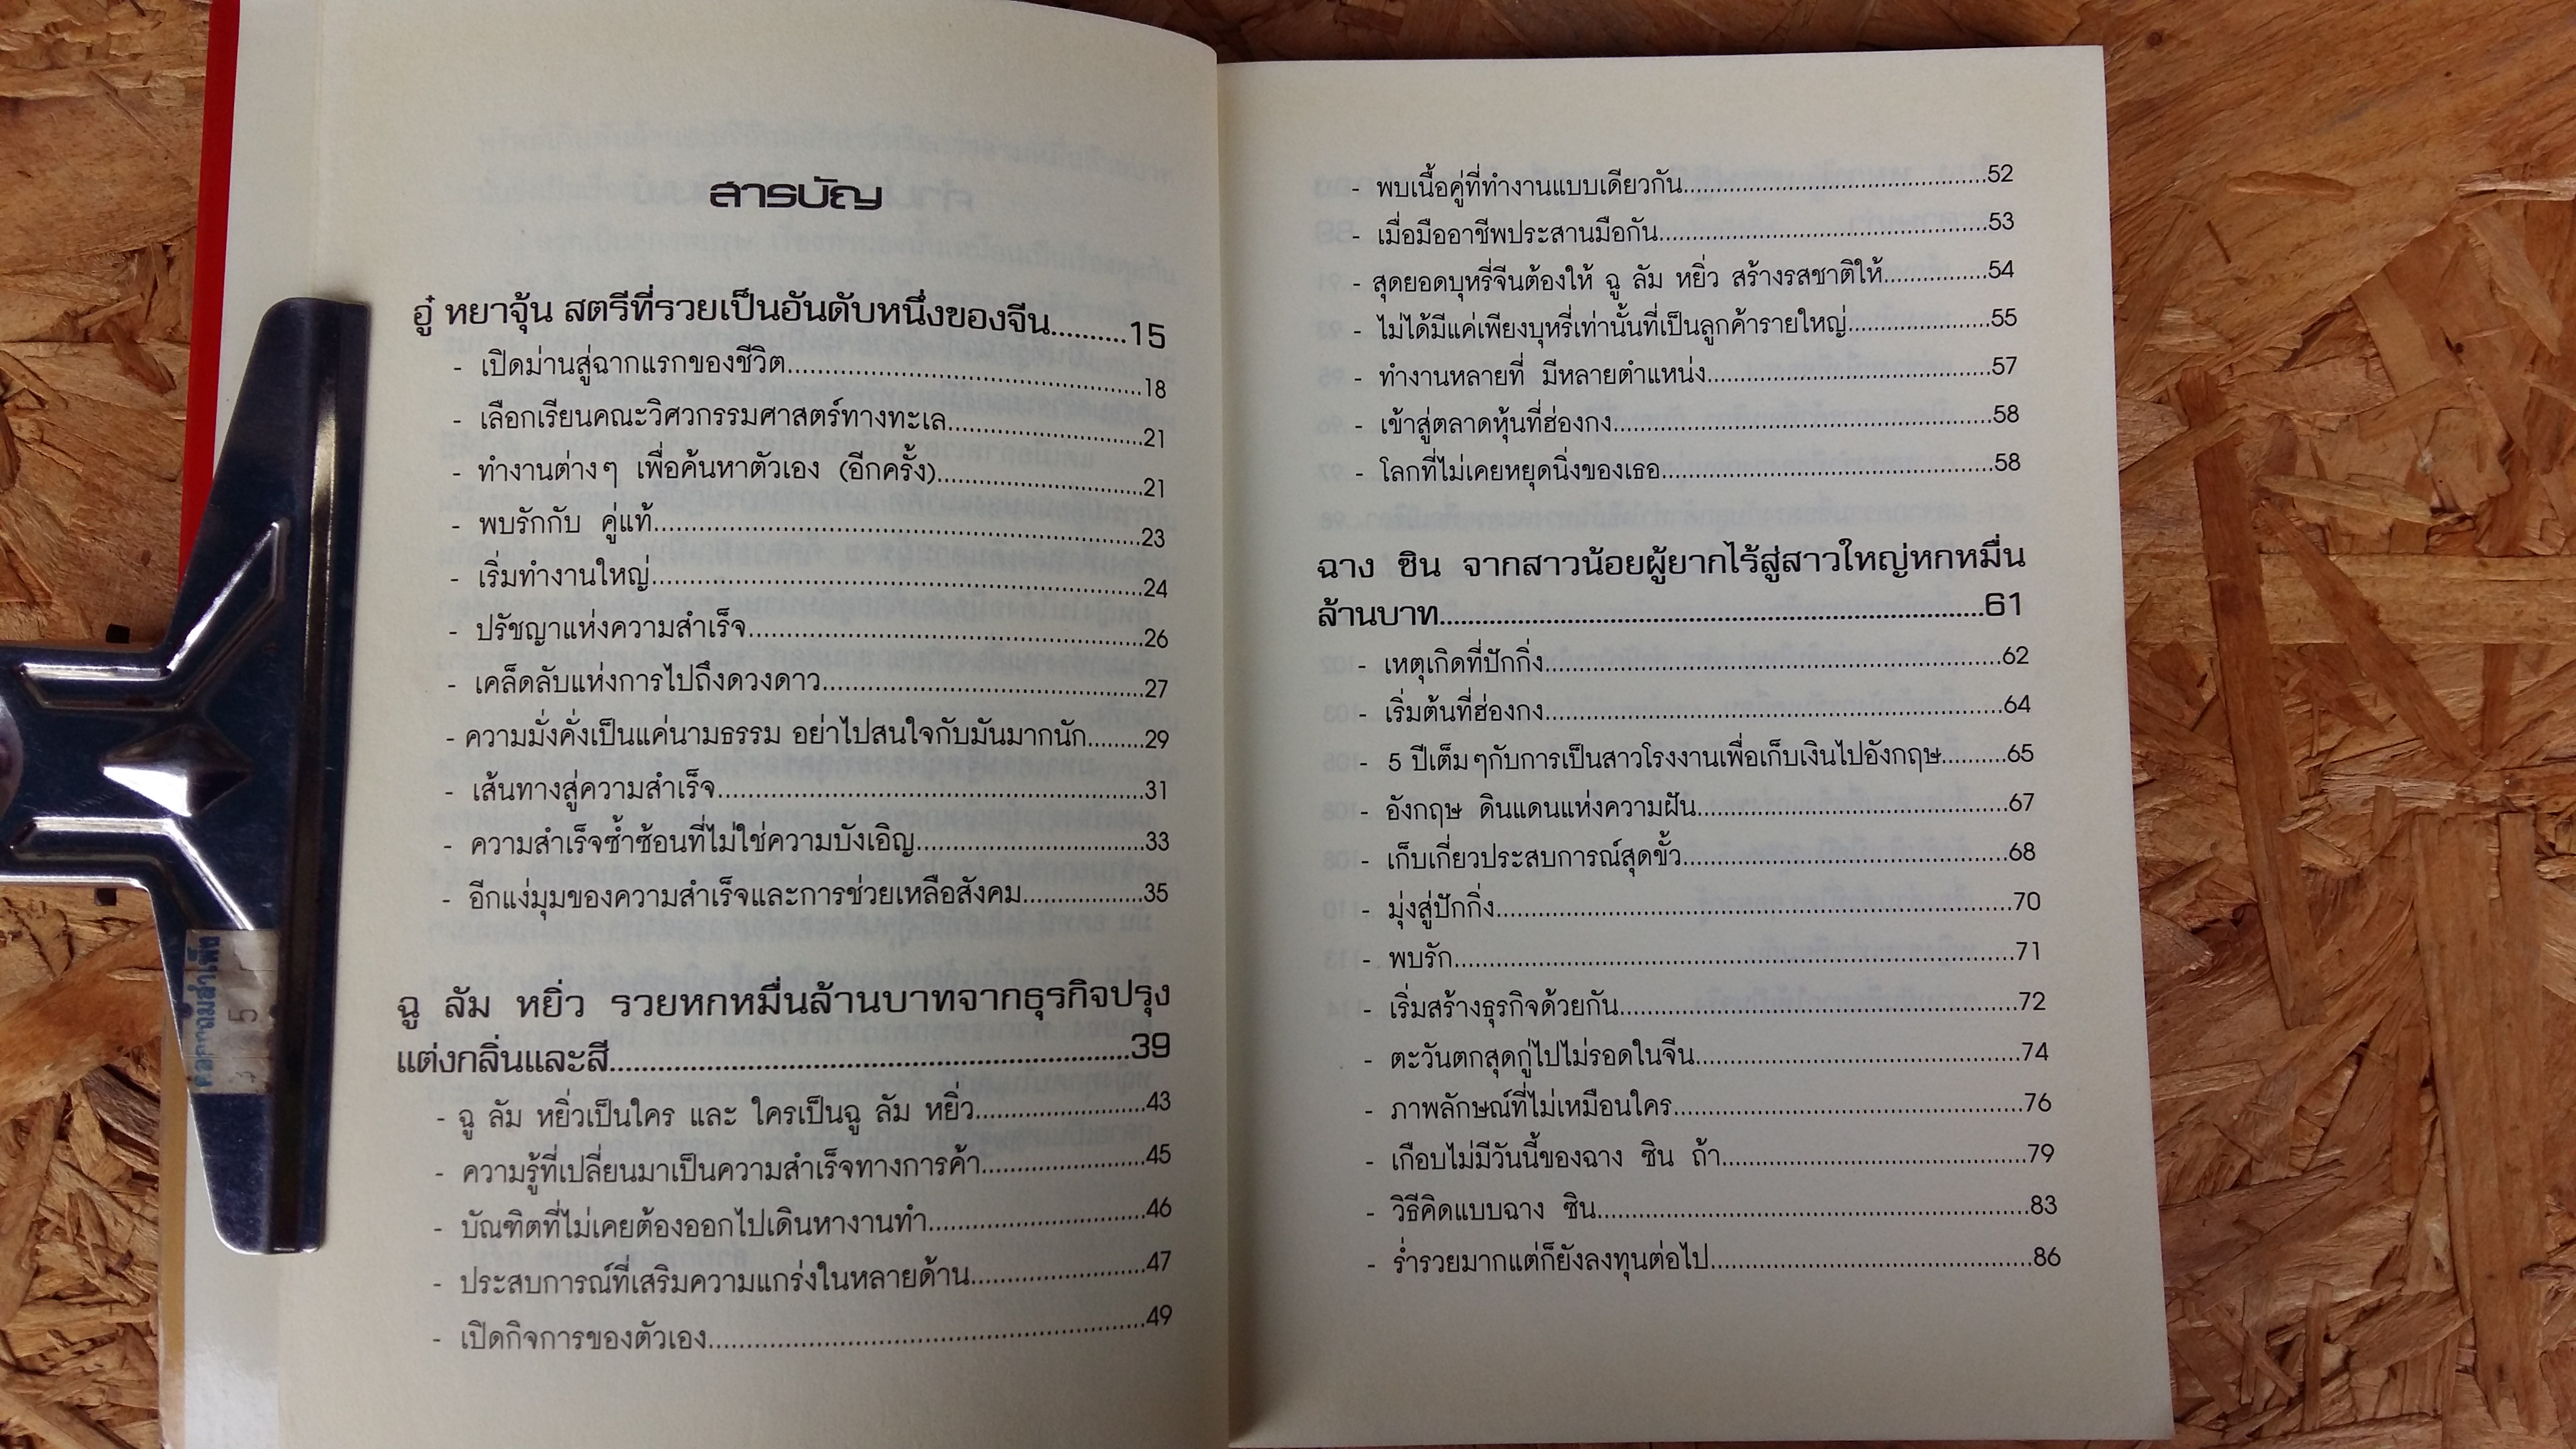 สารบัญ
อู๋ หยาจุ้น สตรีที่รวยเป็นอันดับหนึ่งของจีน..........15
- เปิดม่านสู่ฉากแรกของชีวิต..........18
- เลือกเรียนคณะวิศวกรรมศาสตร์ทางทะเล..........21
- ทำงานต่างๆ เพื่อค้นหาตัวเอง (อีกครั้ง)..........21
- พบรักกับ คู่แท้..........23
- เริ่มทำงานใหญ่..........24
- ปรัชญาแห่งความสำเร็จ..........26
- เคล็ดลับแห่งการไปถึงดวงดาว..........27
- ความมั่งคั่งเป็นแค่นามธรรม อย่าไปสนใจกับมันมากนัก.........29
- เส้นทางสู่ความสำเร็จ..........31
- ความสำเร็จซ้ำซ้อนที่ไม่ใช่ความบังเอิญ..........33
- อีกแง่มุมของความสำเร็จและการช่วยเหลือสังคม..........35
ฉู ลัม หยิ่ว รวยหกหมื่นล้านบาทจากธุรกิจปรุง
แต่งกลิ่นและสี..........39
- ฉู ลัม หยิ่วเป็นใคร และ ใครเป็นฉู ลัม หยิ่ว..........43
- ความรู้ที่เปลี่ยนมาเป็นความสำเร็จทางการค้า..........45
- บัณฑิตที่ไม่เคยต้องออกไปเดินหางานทำ..........46
- ประสบการณ์ที่เสริมความแกร่งในหลายด้าน..........47
- เปิดกิจการของตัวเอง..........49
- พบเนื้อคู่ที่ทำงานแบบเดียวกัน..........52
- เมื่อมืออาชีพประสานมือกัน..........53
- สุดยอดบุหรี่จีนต้องให้ ฉู ลัม หยิ่ว สร้างรสชาติให้..........54
- ไม่ได้มีแค่เพียงบุหรี่เท่านั้นที่เป็นลูกค้ารายใหญ่..........55
- ทำงานหลายที่ มีหลายตำแหน่ง..........57
- เข้าสู่ตลาดหุ้นที่ฮ่องกง..........58
- โลกที่ไม่เคยหยุดนิ่งของเธอ..........58
ฉาง ซิน จากสาวน้อยผู้ยากไร้สู่สาวใหญ่หกหมื่น
ล้านบาท..........61
- เหตุเกิดที่ปักกิ่ง..........62
- เริ่มต้นที่ฮ่องกง..........64
- 5 ปีเต็มๆกับการเป็นสาวโรงงานเพื่อเก็บเงินไปอังกฤษ..........65
- อังกฤษ ดินแดนแห่งความฝัน..........67
- เก็บเกี่ยวประสบการณ์สุดขั้ว..........68
- มุ่งสู่ปักกิ่ง..........70
- พบรัก..........71
- เริ่มสร้างธุรกิจด้วยกัน..........72
- ตะวันตกสุดกู่ไปไม่รอดในจีน..........74
- ภาพลักษณ์ที่ไม่เหมือนใคร..........76
- เกือบไม่มีวันนี้ของฉาง ซิน ถ้า..........79
- วิธีคิดแบบฉาง ซิน..........83
- ร่ำรวยมากแต่ก็ยังลงทุนต่อไป..........86